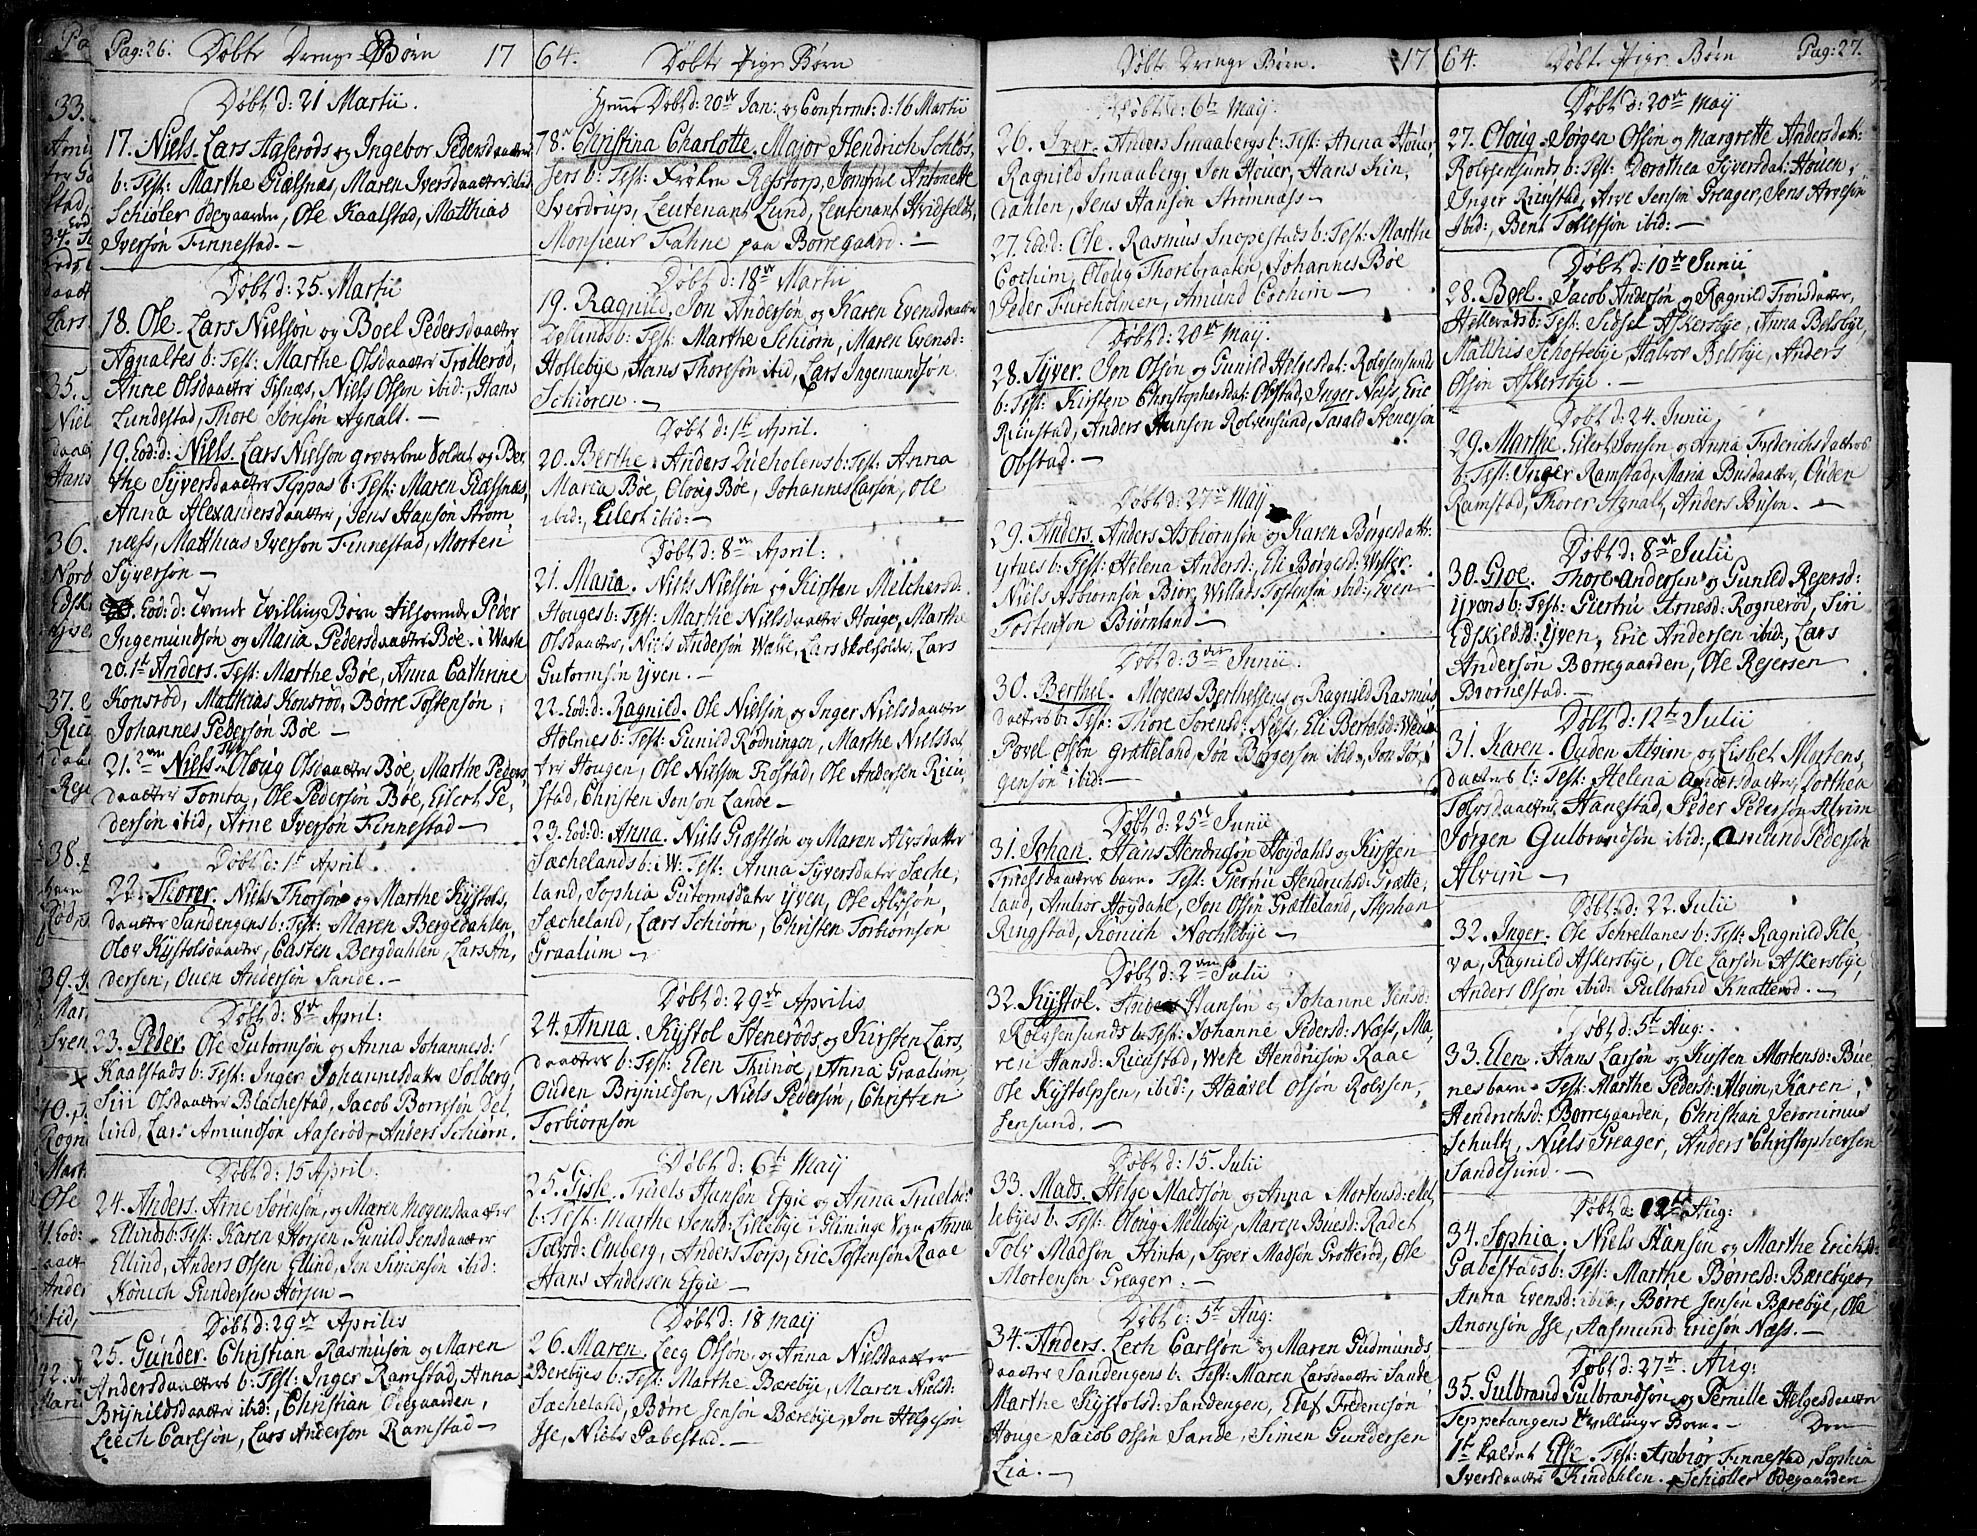 Pag: 26. Døbte Drenge Børn 17
Døbt d: 21 Martii.
17. Niels. Lars Aaserøds og Ingebor Pedersdaatters
b: Test: Marthe Giælsnæs, Maren Iversdaatter ibid
Schiøler Ødegaarden, Ole Kaalstad, Matthias
Iversøn Finnestad. —
Døbt d: 25. Martii
18. Ole. Lars Nielsøn og Boel Pedersdaatter
Agnaltes b: Test: Marthe Olsdaatter Trollerød,
Anne Olsdaatter Isnæs, Niels Olsøn ibid:, Hans
Lundestad, Thore Jensøn Agnalt. —
19. Eod: d: Niels. Lars Nielsøn gevorben Soldat og Ber,
the Syversdaatter Teppas b: Test: Maren Giælsnæs,
Anna Alexandersdaatter, Jens Hansøn Strøm,
næss, Matthias Iversøn Finnestad, Morten
Syversøn —
Eod: d: Tvende Tvilling Børn tilhørende Peder
Ingemundsøn og Maria Pedersdaatter Bøe. i Warte
20. 1te Anders. Test: Marthe Bøe, Anna Cathrine
Konsrød, Matthias Konsrød, Børre Tostensøn,
Johannes Pedersøn Bøe —
21. 2den Niels Test: Oloug Olsdaatter Bøe, Marthe Peders,
daatter Tomta, Ole Pedersøn Bøe, Eilert Pe,
dersøn ibid, Arne Iversøn Finnestad —
Døbt d: 1te April.
22. Thorer. Niels Thorsøn og Marthe Kystols,
daatter Sandengens b: Test: Maren Bergedahlen,
Olov Kystolsdaatter, Casten Bergdahlen, Lars An,
dersen, Ouen Andersøn Sande. —
Døbt d: 8de April:
23. Peder. Ole Gutormsøn og Anna Johannesd:
Kaalstads b: Test: Inger Johannesdatter Solberg,
Siri Olsdaatter Blachestad, Jacob Borresøn Del
lind, Lars Amundsøn Aaserød, Anders Schiørn.
Døbt d: 15 April.
24. Anders. Arne Sørensøn, og Maren Mogensdaatter
Ellinds b: Test: Karen Horsen, Gunild Jensdaatter
Ellind, Anders Olsen Ellind, Jon Simensøn ibid:
Könich Gundersen Hørsen —
Døbt d: 29de Aprilis
25. Gunder. Christian Rasmusøn og Maren
Andersdaatters b: Test: Inger Ramstad, Anna
Brynildsdaatter ibid:, Christian Ødegaarden,
Leech Carlsøn, Lars Andersøn Ramstad —
64. Døbte Pige Børn
Hjemme Døbt d: 20de Jan: og Confirmt: d: 16 Martii
18. Christina Charlotte. Major Hendrich Schløs,
sers b: Test: Frøken Rostorp, Jomfrue Antonette
Sverdrup, Leutenant Lund, Leutenant Hvidfeldt,
Monsieur Fahne paa Borregaard. —
Døbt d: 18de Martii
19. Ragnild. Jon Andersøn og Karen Evensdaatter
Deslinds b: Test: Marthe Schiørn, Maren Evensd:
Hollebye, Hans Thoresøn ibid, Lars Ingemundsøn
Schiøren. —
Døbt d: 1te April.
20. Berthe. Anders Dueholens b: Test: Anna
Maria Bøe, Oloug Bøe, Johannes Larsøn, Ole
ibid:, Eilert ibid: —
Døbt d: 8de April:
21. Maria. Niels Nielsøn og Kirsten Melchersd:
Houges b: Test: Marthe Nielsdaatter Houge, Marthe
Olsdaatter, Niels Andersøn Walle, Lars skoleholder, Lars
Gutormsøn Yven. —
22. Eod: d: Ragnild. Ole Nielsøn og Inger Nielsdaatter
Holmes b: Test: Gunild Rødningen, Marthe Nielsdat,
ter Hougen, Ole Nielsøn Rostad, Ole Andersen Rieu,
stad, Christen Jonsøn Lande —
23. Eod: d: Anna. Niels Giæstsøn og Maren Alvsdatter
Sæchelands b: W: Test: Anna Syversdater Sæche,
land, Sophia Gutormsdater Yven, Ole Alvsøn,
Sæcheland, Lars Schiørn, Christen Torbiørnsøn
Graalum —
Døbt d: 29de Aprilis
24. Anna. Kystol Stenerøds og Kirsten Lars,
daatters b: Test: Elen Thunøe, Anna Graalum,
Ouden Brynildsøn, Niels Pedersøn, Christen
Torbiørnsøn
Døbt d: 6te Maij
25. Gisle. Truels Hansøn Efgie og Anna Truelsd:
b: Test: Marthe Svensd: Lillebye i Gleminge Sogn, Anna
Tolvsd: Emberg, Anders Torp, Eric Tostensøn Raae
Hans Andersen Efgie —
Døbt d: 18 maij
26. Maren. Leeg Olsøn og Anna Nielsdaatter
Berebyes b: Test: Marthe Bærebye, Maren Nielsd:
Sæcheland, Børre Jensøn Bærebye, Jon Helgesøn
Ise, Niels Gabestad. —
Døbte Drenge Børn. 17
Døbt d: 6te May.
26. Iver. Anders Smaabergs b: Test: Anna Houer,
Ragnild Smaaberg, Jon Houer, Hans Kin,
dahlen, Jens Hansøn Strømnæss —
27. Eod: d: Ole. Rasmus Inopestads b: Test: Marthe
Cochim, Oloug Thorebraaten, Johannes Bøe
Peder Fureholmen, Amund Cochim —
Døbt d: 20de May.
28. Syver. Jon Olsøn og Gunild Helgesdat: Rolvsensunds
b: Test: Kirsten Christophersdat: Obstad, Inger Næss, Eric
Rienstad, Anders Hansøn Rolvsensund, Tarald Stenersøn
Obstad. —
Døbt d: 27de May
29. Anders. Anders Asbiørnsøn og Karen Børgesdatt:
ytnes b: Test: Helena Andersd:, Eli Børgesd: Wister,
Niels Asbiørnsøn Biør, Willads Tostensøn ibid:, Even
Tostensøn Biørnland —
Døbt d: 3die Junii.
30. Berthel. Mogens Berthelsens og Ragnild Rasmus
daatters b: Test: Thore Sørensd: Næss, Eli Bertelsd:
Povel Olsøn Grætteland, Jon Børgersøn ibid:, Jon Jør,
gensøn ibid: —
Døbt d: 25de Junii
31. Johan. Hans Hendrichsøn Høydahls og Kirsten
Truelsdaatters barn. Test: Giertru Hendrichsd: Grætte,
land, Amborr Høydahl, Jon Olsøn Grætteland, Stephan
Ringstad, Könich Nochlebye —
Døbt d: 2den Julii
32. Kystol. Anders Hansøn og Johanne Jensd:
Rolvsensunds b: Test: Johanne Pedersd: Næss, Ma,
ren Hansd: Rienstad, Weke Hendrichsøn Raae
Ole Kystolssen, ibid:, Haavel Olsøn Rolvsen,
sensund. —
Døbt d: 15. Julii
33. Mads. Helge Madsøn og Anna Mortensd: Mel,
lebyes b: Test: Oloug Mellebye, Maren Buesd: Radet
Tolv Madsøn Hinta, Syver Madsøn Grotterød, Ole
Mortensøn Greager. —
Døbt d: 5te Aug:
34. Anders. Lech Carlsøn og Maren Gudmunds,
daatter Sandengens b: Test: Maren Larsdaatter Sande,
Marthe Kystolsd: Sandengen, Elaf Fredericsøn
Houge, Jacob Olsøn Sande, Simen Gundersen
Lia. —
64. Døbte Pige Børn Pag: 27.
Døbt d: 20de May
27. Oloug. Jørgen Olsøn og Margrette Andersdat:
Rolvsensunds b: Test: Dorothea Syversdat: Houen,
Inger Rienstad, Arve Jensøn Greager, Jens Arvesøn
ibid:, Bent Tollefsøn ibid: —
Døbt d: 10de Junii
28. Boel. Jacob Andersøn og Ragnild Trønsdatter,
Hellerøds b: Test: Sidsel Askersbye, Anna Belsbye,
Matthis Schoftebye Halvor Belsbye, Anders
Olsøn Askersbye. —
Døbt d: 24. Junii
29. Marthe. Eilert Jonsen og Anna Friderichsdatters
b: Test: Inger Ramstad, Maria Buesdaatter, Ouden
Ramstad, Thorer Agnalt, Anders Buesøn. —
Døbt d: 8de Julii
30. Groe. Thore Andersen og Gunild Rejersd:
Yvens b: Test: Giertru Arnesd: Rognerød, Siri
Edskildsd: Yven, Eric Andersen ibid:, Lars
Andersøn Borregaarden, Ole Rejersen
Biørnestad. —
Døbt d: 12te Julii
31. Karen. Ouden Alvim og Lisbet Mortens,
daatters b: Test: Helena Andersdaatter, Dorthea
Hanestad, Peder Pedersøn Alvim
Jørgen Gulbrandsøn ibid:, Amund Pedersøn
Alvim —
Døbt d: 22. Julii
32. Inger. Ole Schrellanes b: Test: Ragnild Kile
va, Ragnild Askersbye, Ole Larsøn Askersbye,
Anders Olsøn ibid: Gulbrand Knatterød. —
Døbt d: 5te Aug:
33. Elen. Hans Larsøn og Kirsten Mortensd: Bue
nes barn. Test: Marthe Pedersd: Alvim, Karen
Hendrichsd: Borregaarden, Christian Jeronimus
Schultz, Niels Greager, Anders Christophersen
Sandesund. —
Døbt d: 12te Aug:
34. Sophia. Niels Hansøn og Marthe Ericksd:
Gabestads b: Test: Marthe Børresd: Bærebye,
Anna Evensd: ibid:, Børre Jensøn Bærebye, Ola
Anonsøn Ise, Aasmund Ericsøn Næss. —
Døbt d: 27de Aug:
35. Gulbrand Gulbrandsøn og Pernille Helgesdaatter
Teppetangens Tvillinge Børn. — Den
1te kaldet Else. Test: Arabror Finnestad, Sophia
Iversdaatter Kindahlen. Schiøller Ødegaarden